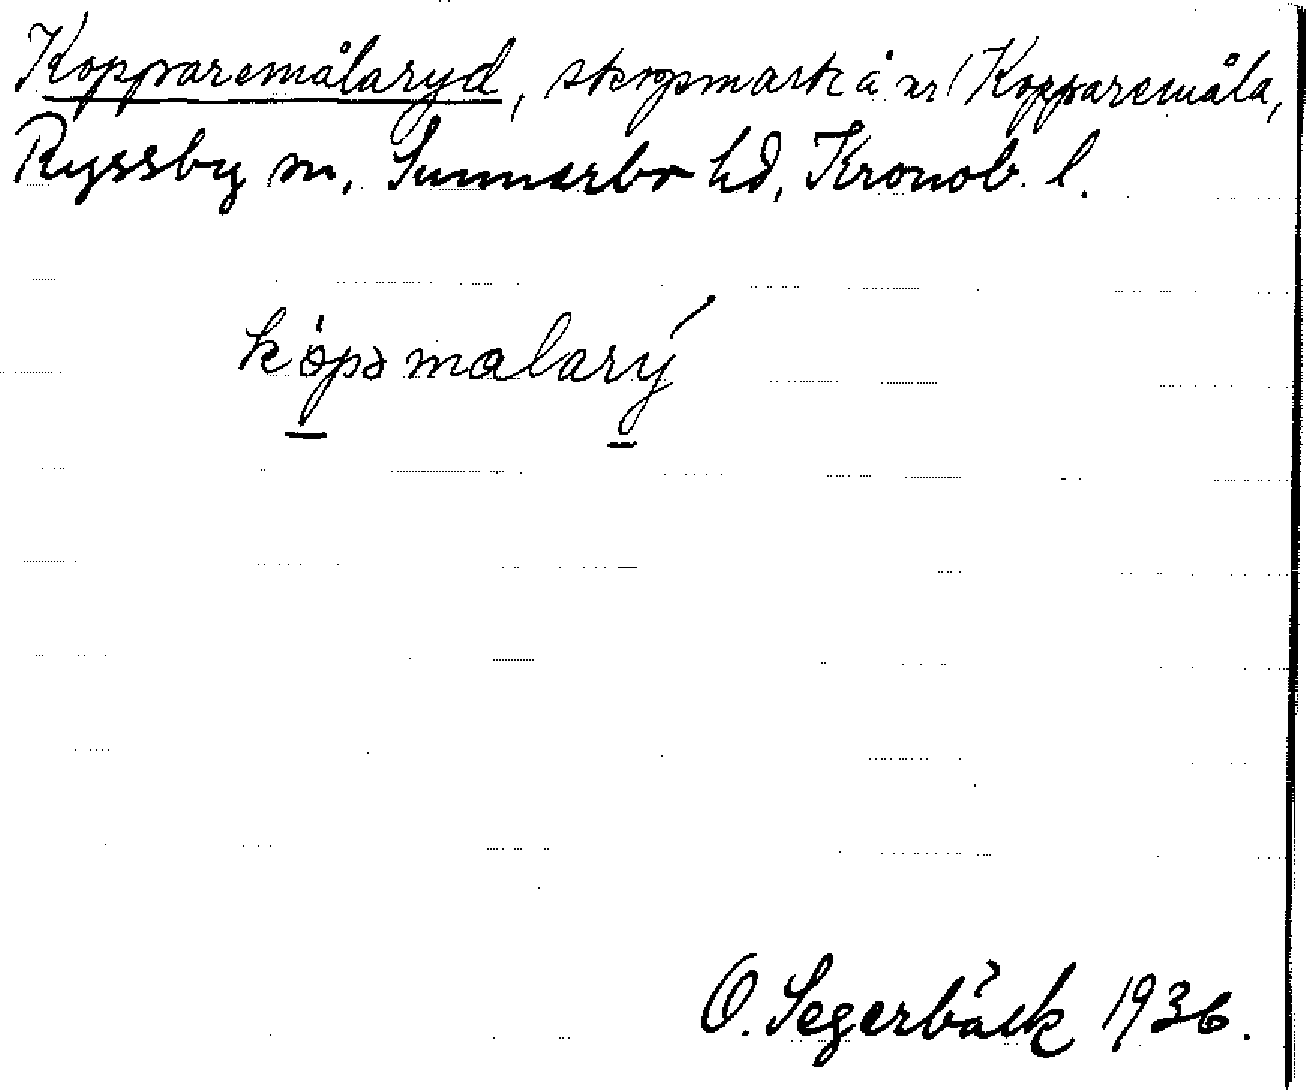 Kopparemålaryd, skogsmark å nr 1 Kopparemåla,
Ryssby sn, Sunnerbo hd, Kronob. l.
köpəmalarý
O. Segerbäck 1936.